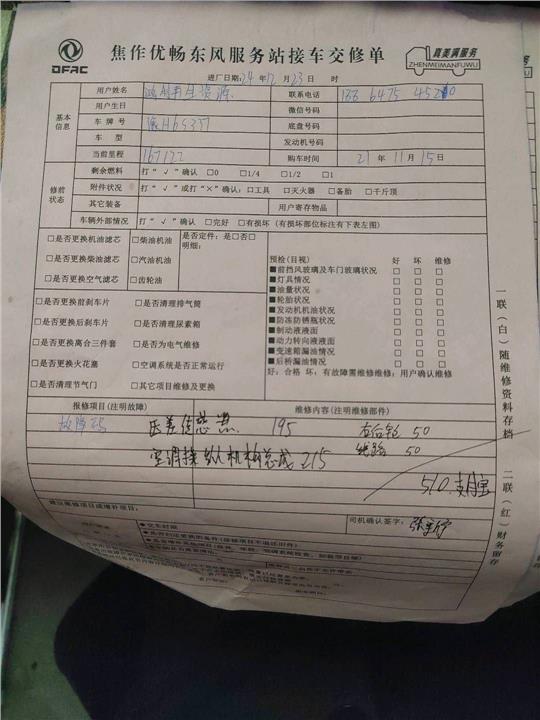 DFAC
焦作优畅东风服务站接车交修单
真美满服务
ZHENMEIMANFUWU
进厂日期:24年12月23日 时
基本信息
用户姓名 再生资源 联系电话
用户生日 微信号码
车牌号 豫H65337 底盘号码
车型 发动机号码
当前里程 167122 购车时间 21年11月15日
修前状态
剩余燃料 打“√”确认 □0 □1/4 □1/2 □1
附件状况 打“√”或打“×”确认:□工具 □灭火器 □备胎 □千斤顶
其它装备 用户寄存物品
车辆外部情况 打“√”确认 □完好 □有损坏(有损坏部位标注有下表左图)
□是否更换机油滤芯 □柴油机油 是否定件:是□否□
明细:
□是否更换柴油滤芯 □汽油机油
□是否更换空气滤芯 □齿轮油
□是否更换前刹车片 □是否清理排气筒
□是否更换后刹车片 □是否清理尿素箱
□是否更换离合三件套 □是否为电气维修
□是否更换火花塞 □空调系统是否正常运行
□是否清理节气门 □其它项目维修及更换
预检(目视) 好 坏 维修
■前挡风玻璃及车门玻璃状况 □ □ □
■灯具情况 □ □ □
■油量状况 □ □ □
■轮胎状况 □ □ □
■发动机机油状况 □ □ □
■防冻防锈瓶状况 □ □ □
■制动液液面 □ □ □
■动力转向液液面 □ □ □
■变速箱漏油情况 □ □ □
■后桥漏油情况 □ □ □
好:合格 坏:有故障需维修维修:用户确认维修
报修项目(注明故障) 维修内容(注明维修部件)
故障码 压差传感器 195 50
空调操纵机构总成 215 线路 50
510.支付宝
建议维修项目或增补项目:
司机确认签字:
一联(白)随维修资料存档 二联(红)财务留存